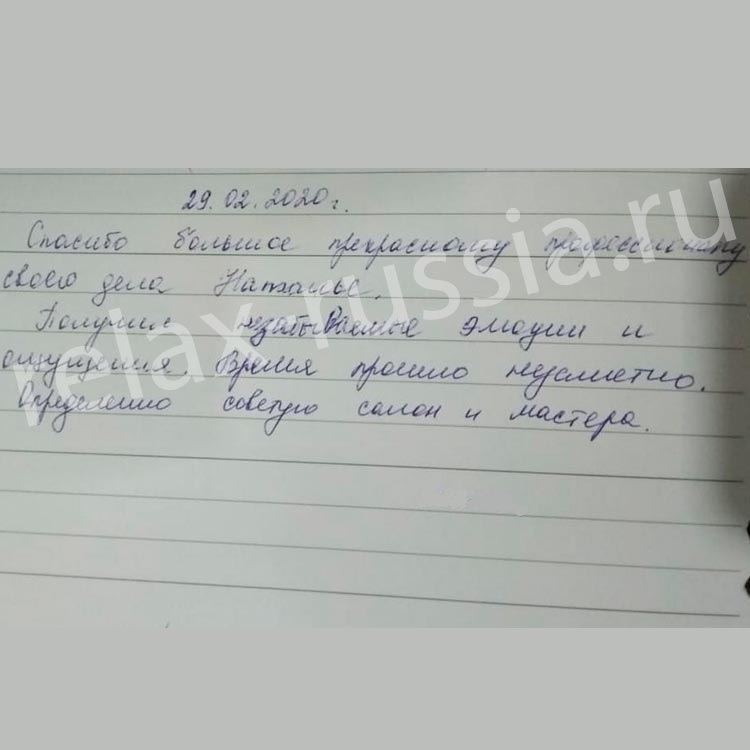 29.02.2020г.
Спасибо большое прекрасному профессионалу
своего дела Наталье.
Получил незабываемые эмоции и
ощущения. Время прошло незаметно.
Определенно советую салон и мастера.
relax-russia.ru